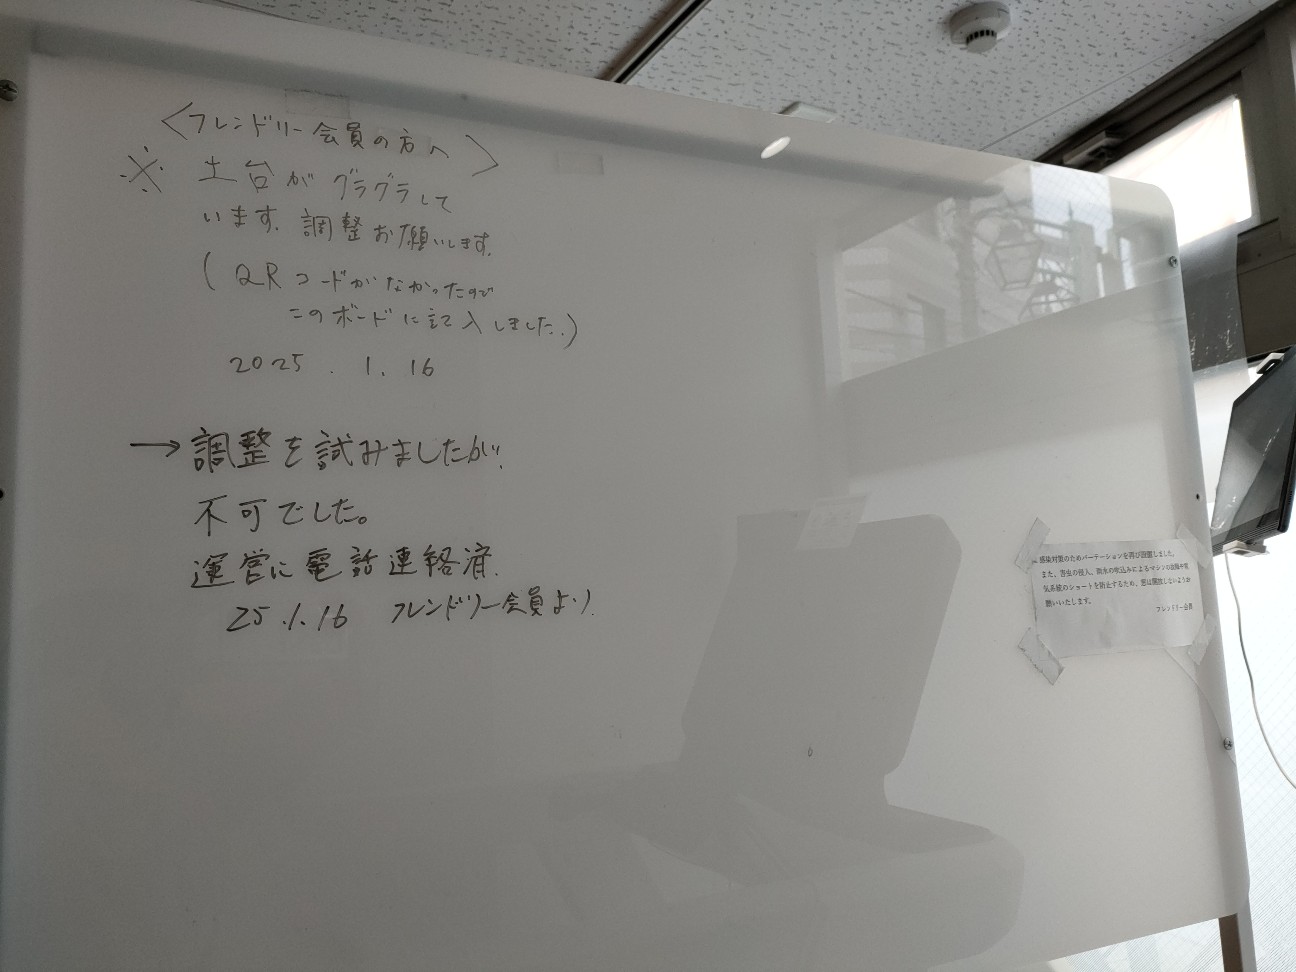 〈フレンドリー会員の方へ〉
※ 土台がグラグラして
います. 調整お願いします.
(QRコードがなかったので
このボードに記入しました.)
2025. 1. 16
→調整を試みましたが、
不可でした。
運営に電話連絡済.
25.1.16 フレンドリー会員より.
感染対策のためパーテーションを再び設置しました。
また、害虫の侵入、雨水の吹込みによるマシンの故障や電
気系統のショートを防止するため、窓は開放しないようお
願いいたします。
フレンドリー会員